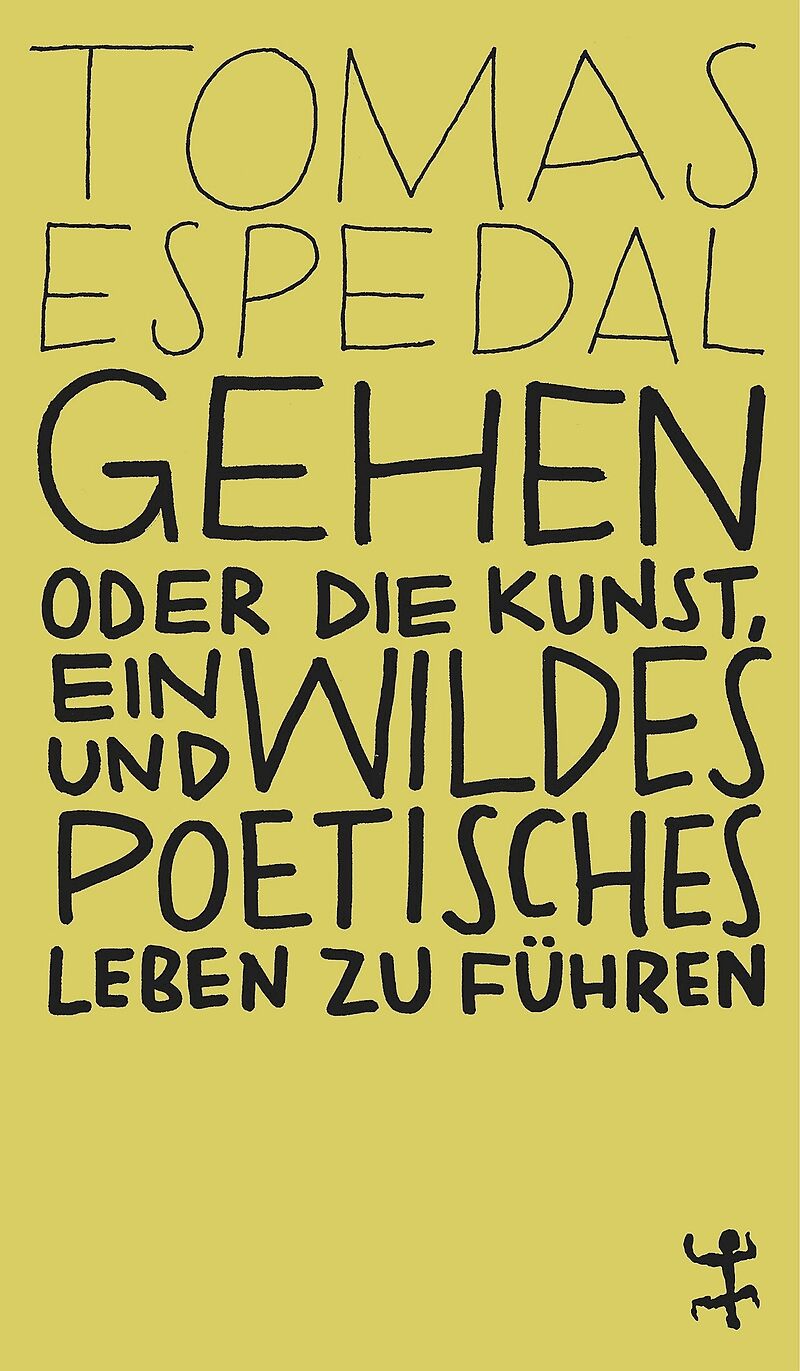 TOMAS
ESPEDAL
GEHEN
ODER DIE KUNST,
EIN WILDES
UND
POETISCHES
LEBEN ZU FÜHREN